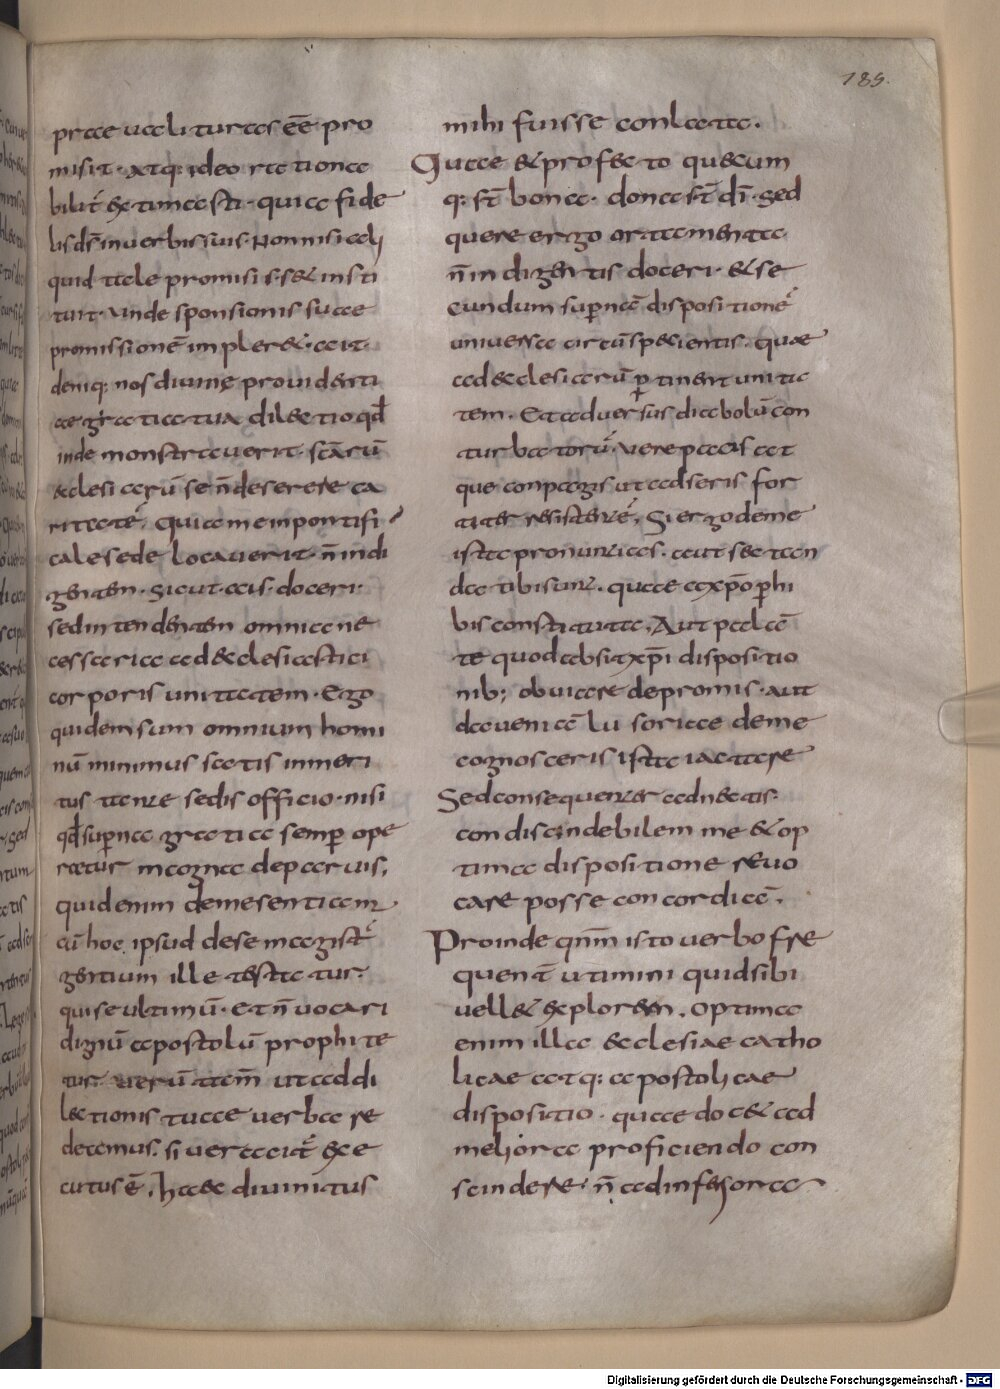 189.
praeualituras eē pro
misit. atq: ideo rationa
bilit́ existima sti. quia fide
lis ds̄ in uerbis suis. Non nisi ali
quid tale promisiss& insti
tuit. Unde sponsionis suae
promissionē impler&. ait.
deniq: nos diuinę prouidenti
ae gratia tua dilectio qd̄
inde monstrauerit. scārū
ecclesiarū se n̄ deserere ca
ritatē. quia me in pontifi
cale sede locauerit. n̄ indi
gentem. sicut ais. doceri.
sed intendentem omnia ne
cessaria ad ecclesiastici
corporis unitatem. Ego
quidem sum omnium homi
nū minimus satis inmeri
tus tantae sedis officio. nisi
qd̄ supn̄a gratia semp ope
raetur magna de paruis.
quid enim de me sentiam
cū hoc ipsud de se magist́
gentium ille testatur.
qui se ultimū. Et n̄ uocari
dignū apostolū prophite
tur. uerū tam̄ ut ad di
lectionis tuae uerba re
deamus. si uera cit̄ exe
cutus ē. haec diuinitus
mihi fuisse conlata.
Quae & profecto quaecum
q: st̄ bona. dona st̄ dī. sed
quere ergo orta mentae
n̄ indigentis doceri. & se
cundum supn̄a dispositionē
uniuersa circūspecientis. quae
ad ecclesiarū ptinent unita
tem. Et aduersus diabolū con
turbatorū. uere pacis at
que conpagis ut adseris for
titer resistere. Si ergo de me
ista pronuntias. aut sectan
da tibi sunt. quae a xp̄o phi
bis constituta. Aut palā
te quod absit xp̄i dispositio
nib; obuiare depromis. aut
da ueniā lusoriae de me
cognosceris ista iactare
Sed consequenter adnectis.
condiscindebilem me & op
tima dispositione reuo
care posse concordiā.
Proinde qnm̄ isto uerbo fre
quent̄ utimini quid sibi
uell& explorem. Optima
enim illa ecclesiae catho
licae atq: apostolicae
dispositio. quae doc& ad
meliora proficiendo con
scindere. n̄ ad inferiora
Digitalisierung gefördert durch die Deutsche Forschungsgemeinschaft - DFG